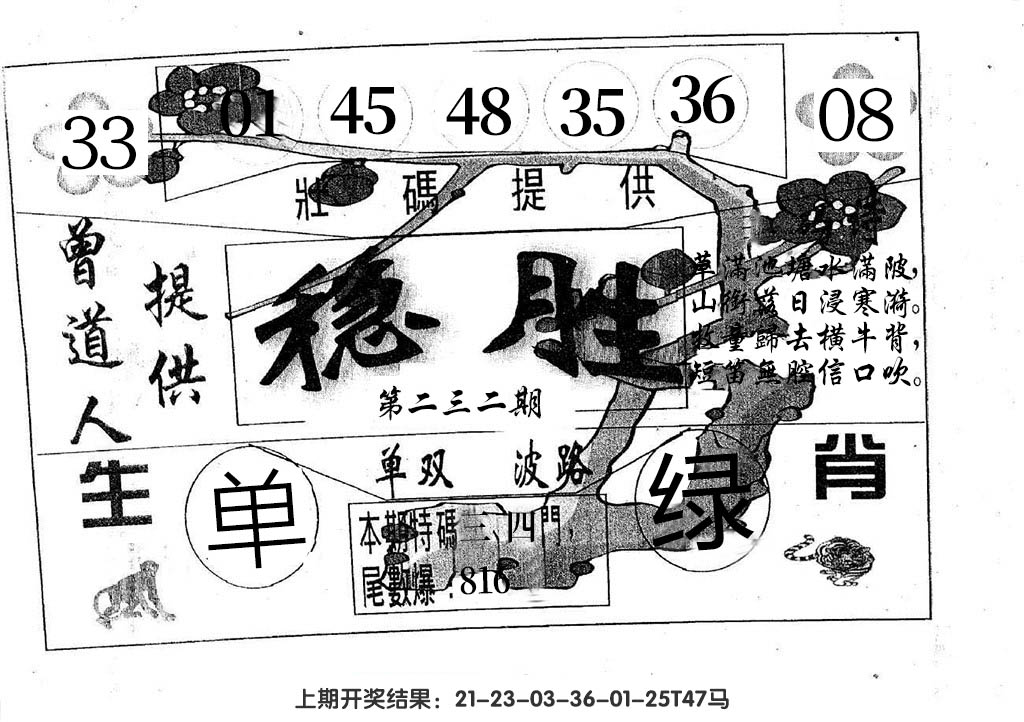 33 01 45 48 35 36 08
壯碼提供
曾道人
提供
稳胜
第二三二期
草满池塘水满陂,
山衔落日浸寒漪。
牧童歸去横牛背,
短笛無腔信口吹。
单双 波路
生肖
单
绿
本期特碼三、四門,
尾數爆:816
上期开奖结果:21-23-03-36-01-25T47马